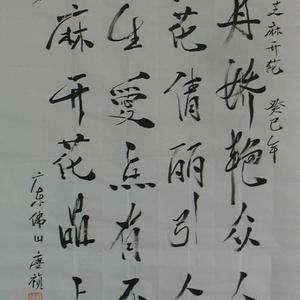 芝麻开花 癸巳年
丹娇艳众人
花倩丽引人
生愛点有不
麻开花上
广东佛山